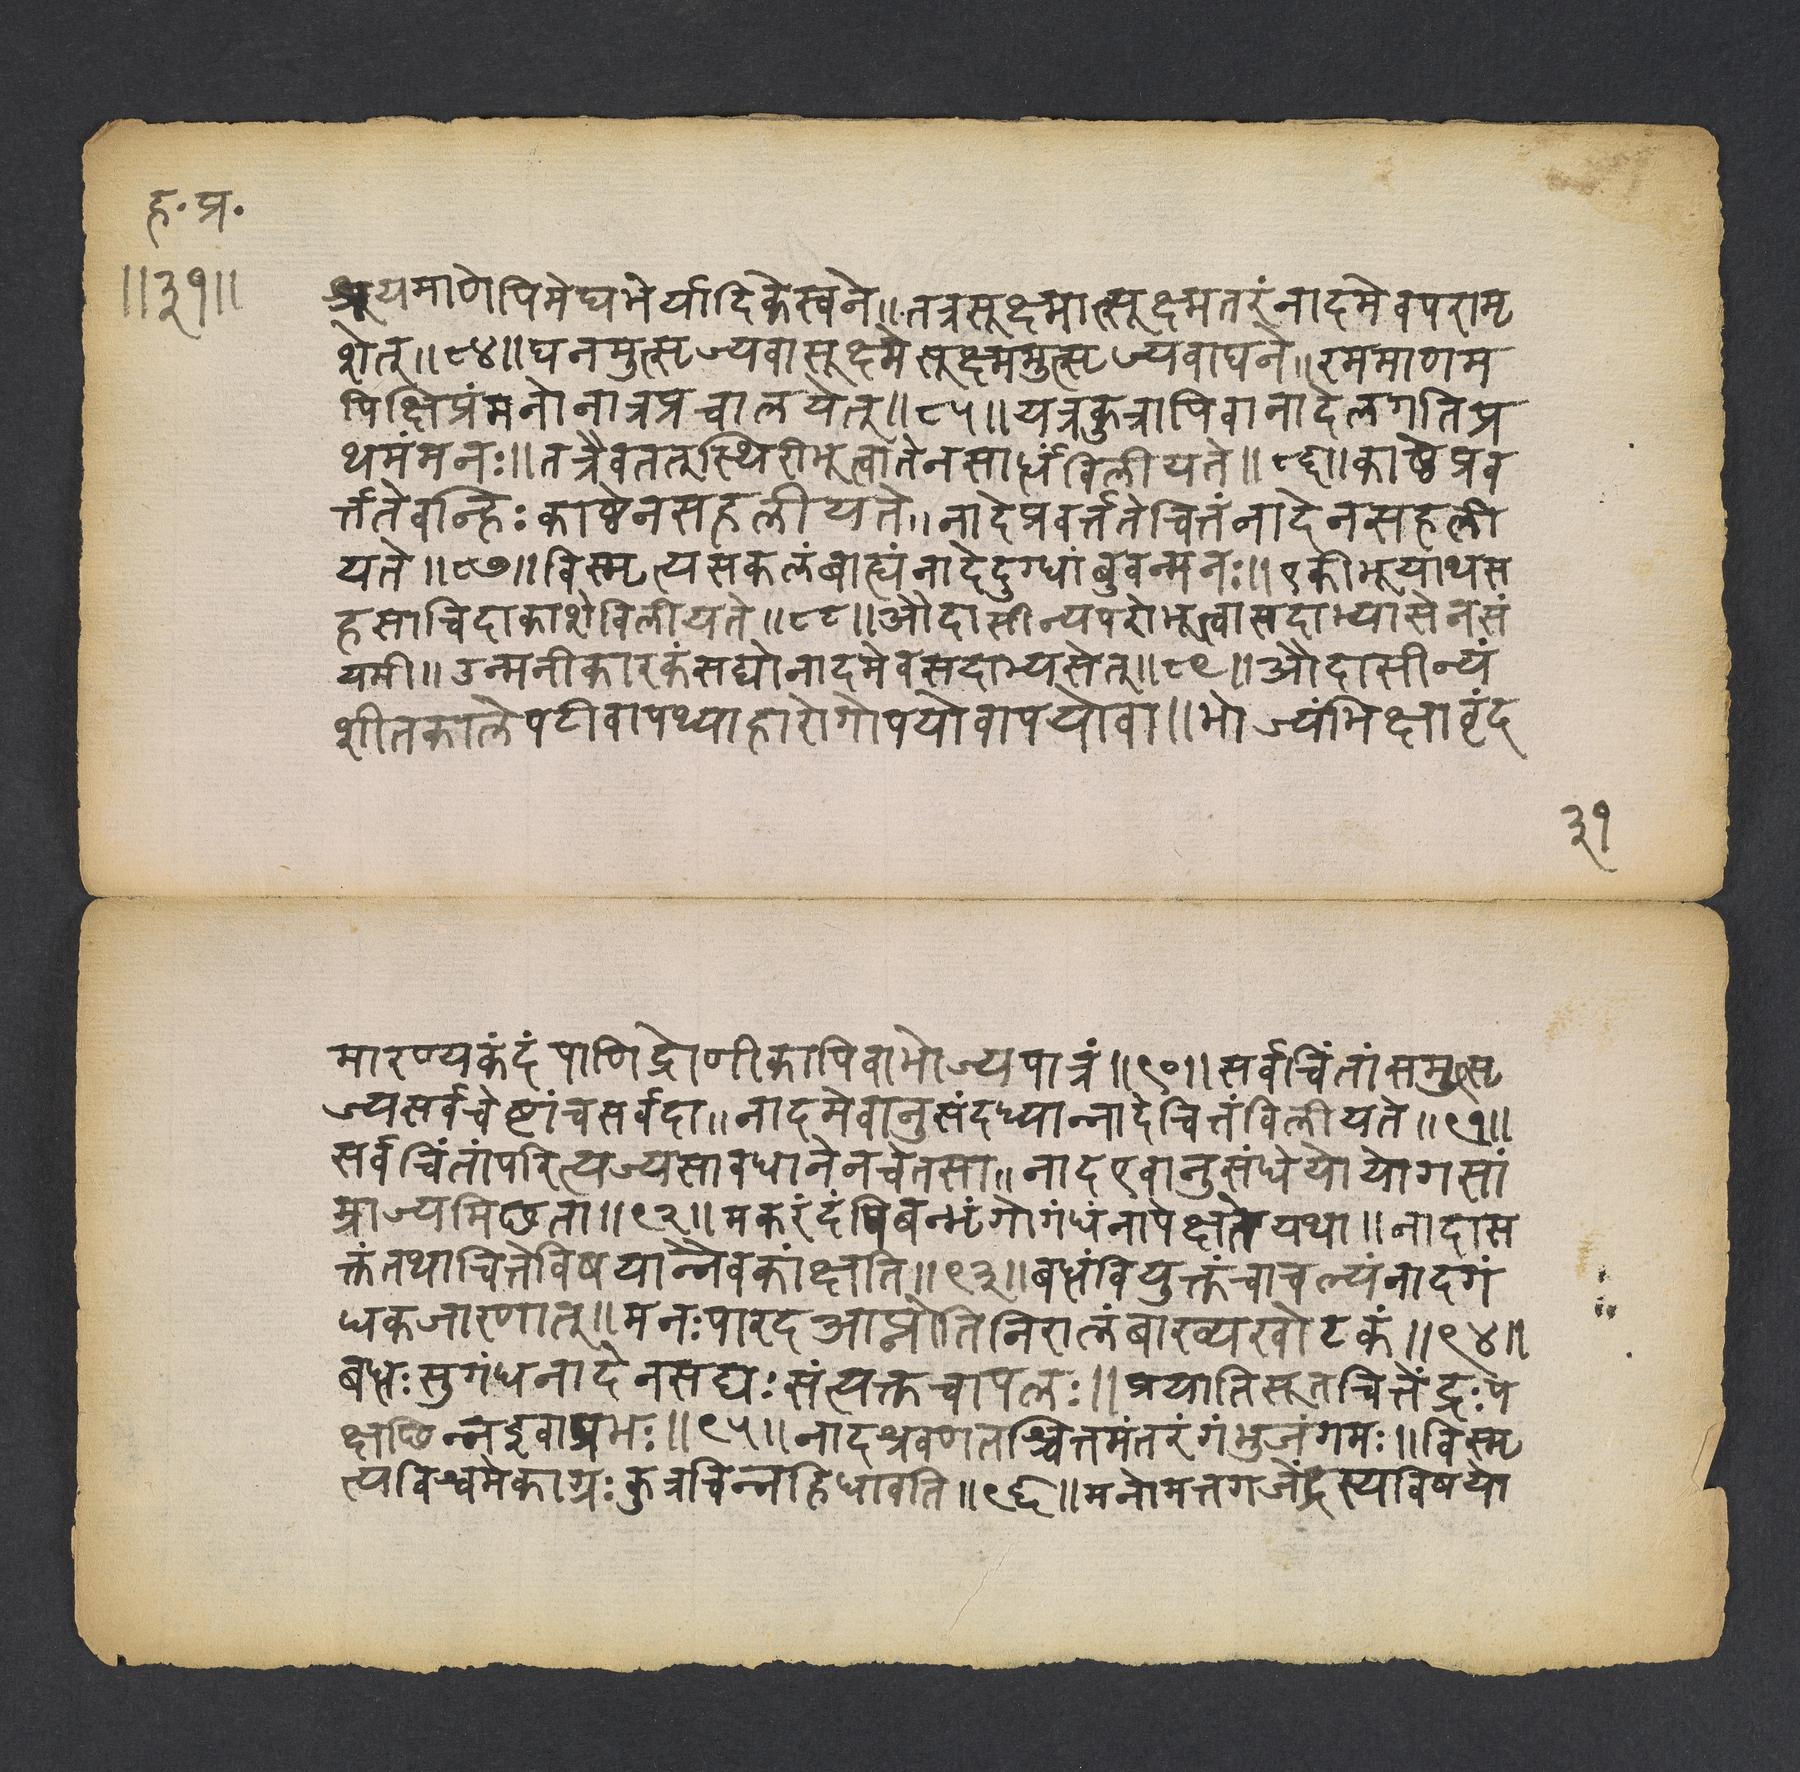 ह॰ प्र॰
॥३१॥
श्रूयमाणेपिमेघभेर्यादिकेस्वने॥तत्रसूक्ष्मात्सूक्ष्मतरंनादमेवपरामृ
शेत्॥८४॥घनमुत्सृज्यवासूक्ष्मेसूक्ष्ममुत्सृज्यवाघने॥रममाणम
पिक्षिप्रंमनोनात्रप्रचालयेत्॥८५॥यत्रकुत्रापिवानादेलगतिप्र
थमंमनः॥तत्रैवतत्तुस्थिरीभूत्वातेनसार्धंविलीयते॥८६॥काष्ठेप्रव
र्त्ततेवन्हिःकाष्ठेनसहलीयते॥नादेप्रवर्त्ततेचित्तंनादेनसहली
यते॥८७॥विस्मृत्यसकलंबाह्यंनादेदुग्धांबुवन्मनः॥एकीभूयाथस
हसाचिदाकाशेविलीयते॥८८॥औदासीन्यपरोभूत्वासदाभ्यासेनसं
यमी॥उन्मनीकारकंसद्योनादमेवसदाभ्यसेत्॥८९॥औदासीन्यं
शीतकालेपटीवापथ्याहारोगोपयोवापयोवा॥भोज्यंभिक्षावृंद
३१
मारण्यकंदंपाणिद्रोणीकापिवाभोज्यपात्रं॥९०॥सर्वचिंतांसमुत्सृ
ज्यसर्वचेष्टांचसर्वदा॥नादमेवानुसंदध्यान्नादेचित्तंविलीयते॥९१॥
सर्वचिंतांपरित्यज्यसावधानेनचेतसा॥नादएवानुसंधेयोयोगसां
म्राज्यमिछता॥९२॥मकरंदंपिबन्भृंगोगंधंनापेक्षतेयथा॥नादास
क्तंतथाचित्तेविषयान्नैवकांक्षति॥९३॥बद्धंवियुक्तंचाचल्यंनादगं
धकजारणात्॥मनःपारदआप्नोतिनिरालंबाख्यखोटकं॥९४॥
बद्धःसुगंधनादेनसद्यःसंत्यक्तचापलः॥प्रयातिसूतचित्तेंद्रःप
क्षछिन्नइवाप्रभः॥९५॥नादश्रवणतश्चित्तमंतरंगंभुजंगमः॥विस्मृ
त्यविश्वमेकाग्रःकुत्रचिन्नहिधावति॥९६॥मनोमत्तगजेंद्रस्यविषयो